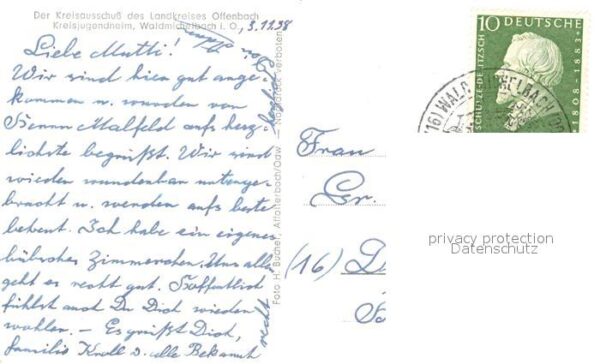 Der Kreisausschuß des Landkreises Offenbach
Kreisjugendheim, Waldmichelbach i. O., 3.11.58
Liebe Mutti!
Wir sind hier gut ange-
kommen u. wurden von
Herrn Malfeld aufs herz-
lichste begrüßt. Wir sind
wieder wunderbar unterge-
bracht u. werden aufs beste
betreut. Ich habe ein eigenes
hübsches Zimmerchen. Uns allen
geht es recht gut. Hoffentlich
fühlst auch Du Dich wieder
wohler. – Es grüßt Dich,
Familie Knoll u. alle Bekannt
recht
herzlich
Foto H. Buchel, Affolterbach/Odw. Nachdruck verboten
Frau
Gr.
(16) D
10 DEUTSCHE
SCHULZE-DELITZSCH 1808-1883
(16) WALD-MICHELBACH (OD
privacy protection
Datenschutz